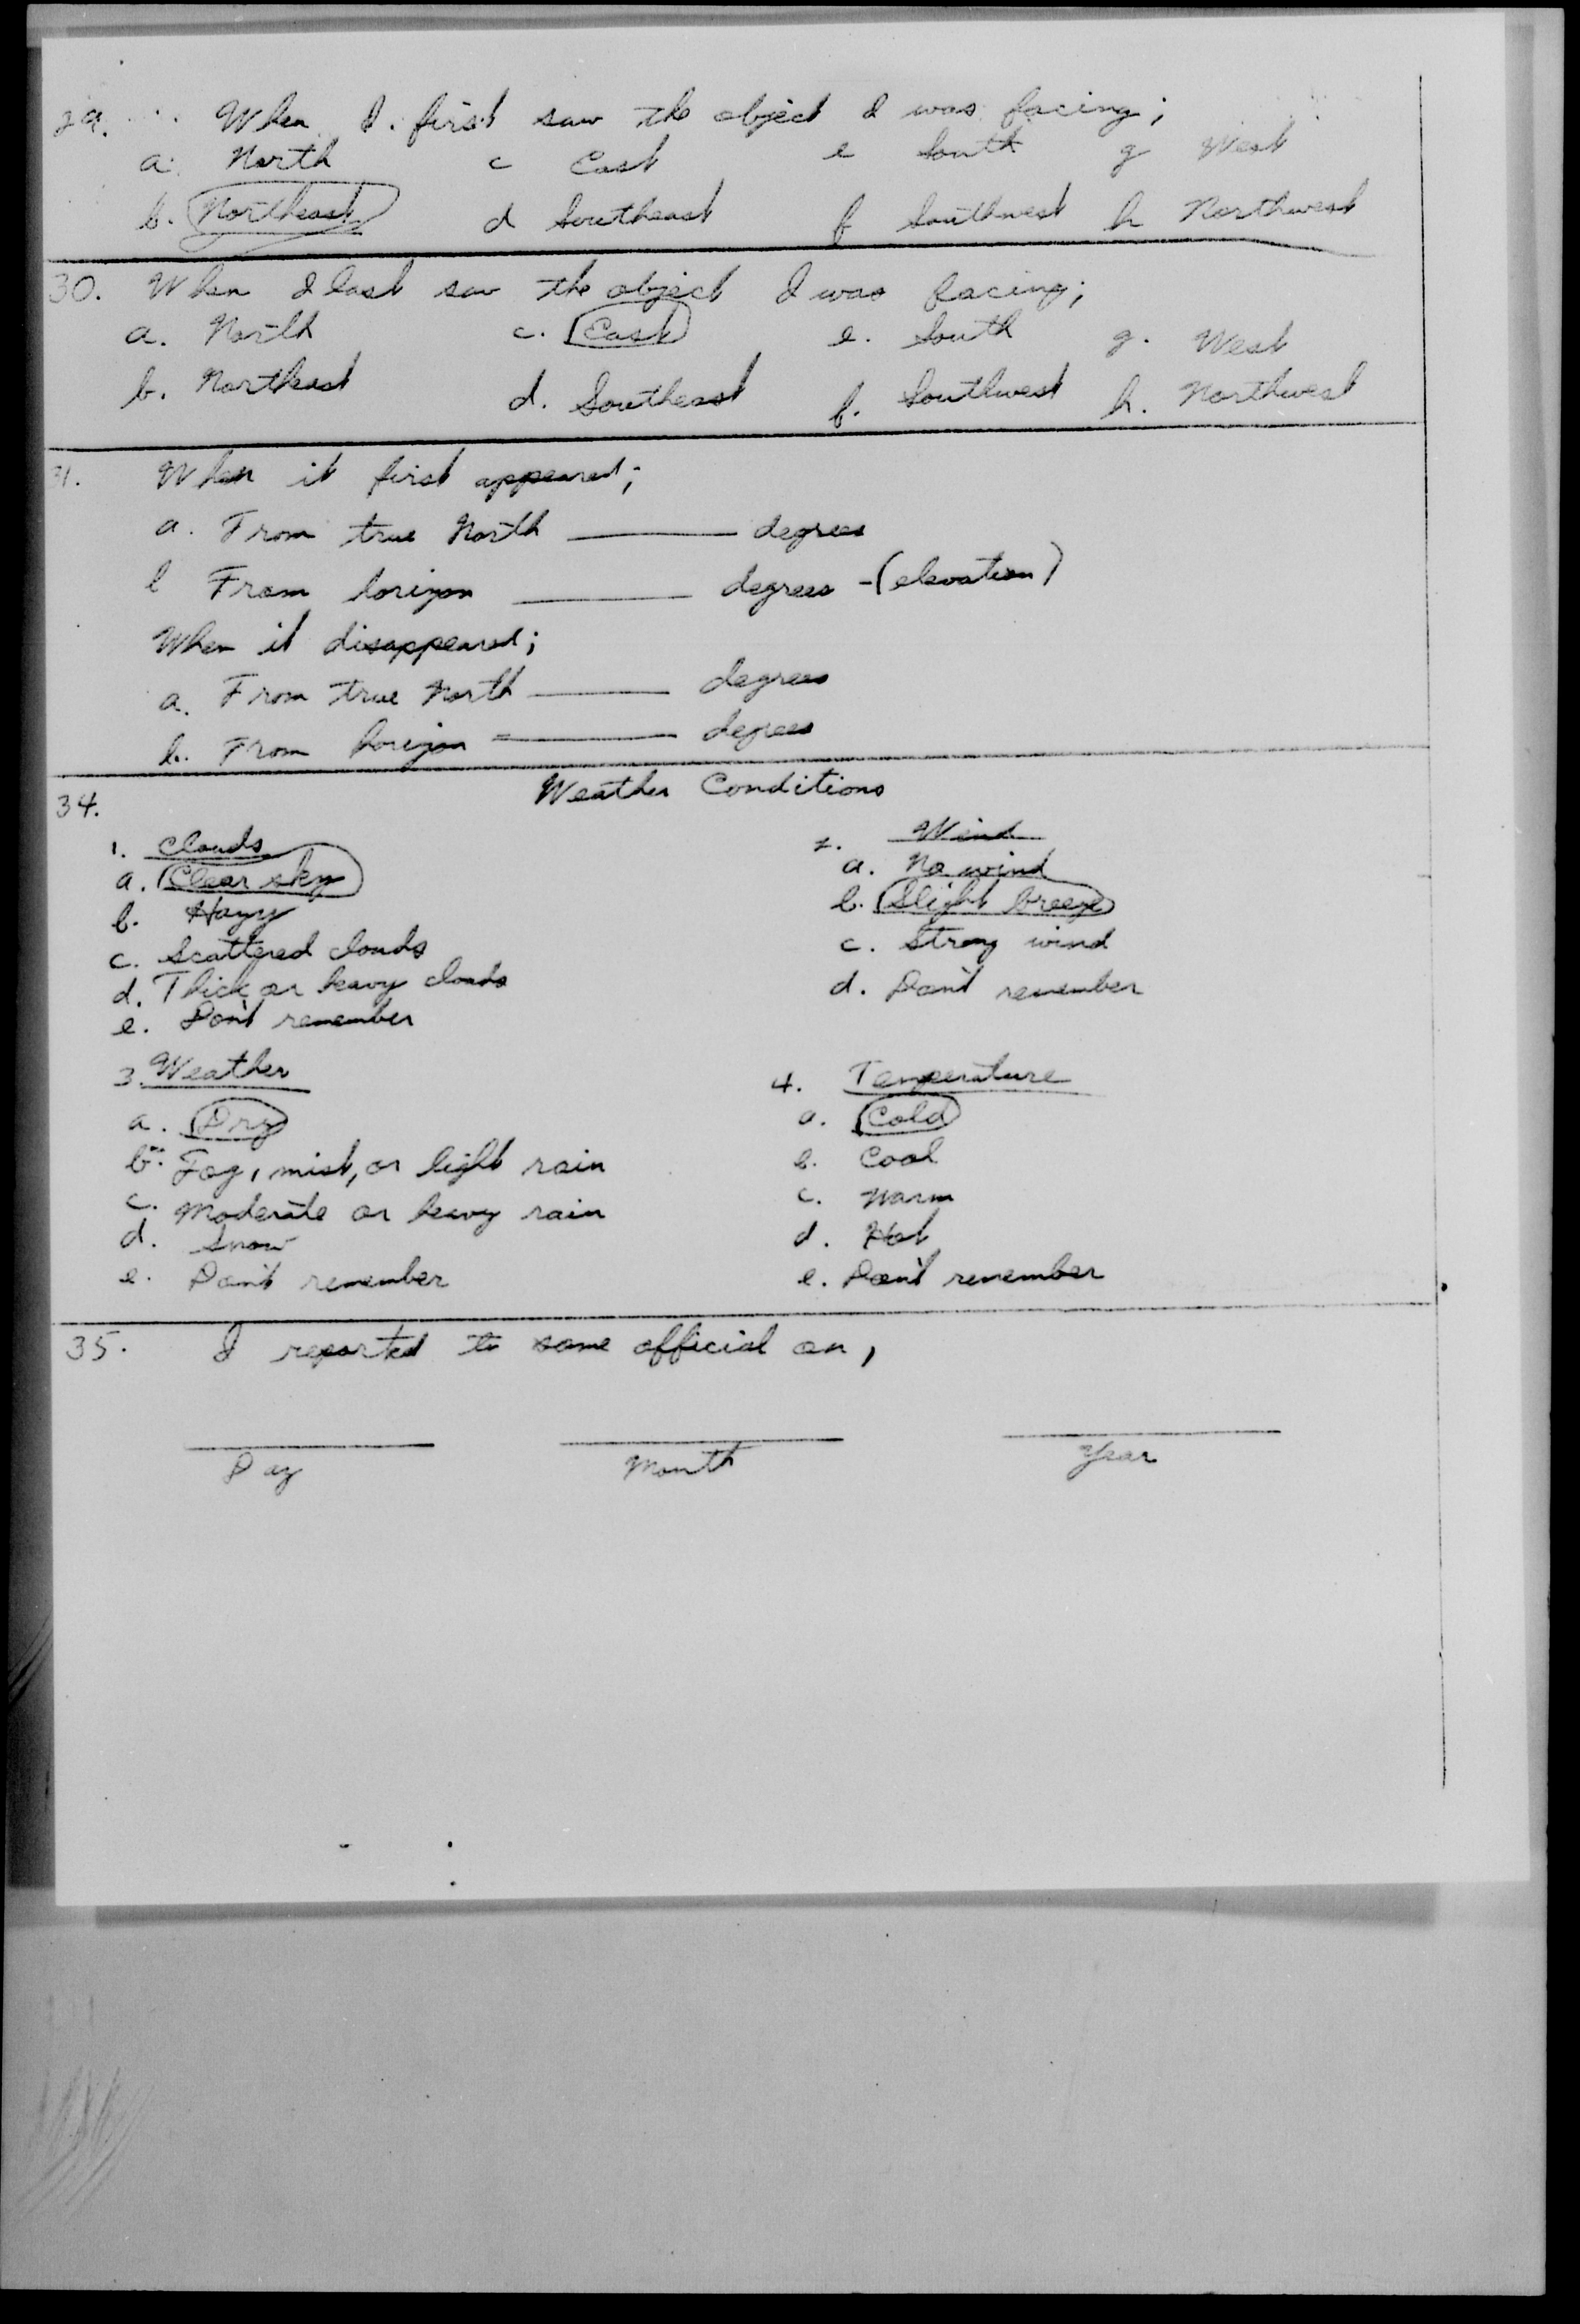 29. When I first saw the object I was facing;
a. North c East e South g West
b. Northeast d Southeast f Southwest h Northwest
30. When I last saw the object I was facing;
a. North c. East e. South g. West
b. Northeast d. Southeast f. Southwest h. Northwest
31. When it first appeared;
a. From true North ——— degrees
b From horizon ——— degrees - (elevation)
When it disappeared;
a. From true North ——— degrees
b. From horizon ——— degrees
34. Weather Conditions
1. Clouds
a. Clear sky
b. Hazy
c. Scattered clouds
d. Thick or heavy clouds
e. Don't remember
2. Wind
a. No wind
b. Slight breeze
c. Strong wind
d. Don't remember
3. Weather
a. Dry
b. Fog, mist, or light rain
c. Moderate or heavy rain
d. Snow
e. Don't remember
4. Temperature
a. Cold
b. Cool
c. Warm
d. Hot
e. Don't remember
35. I reported to some official on,
Day Month Year